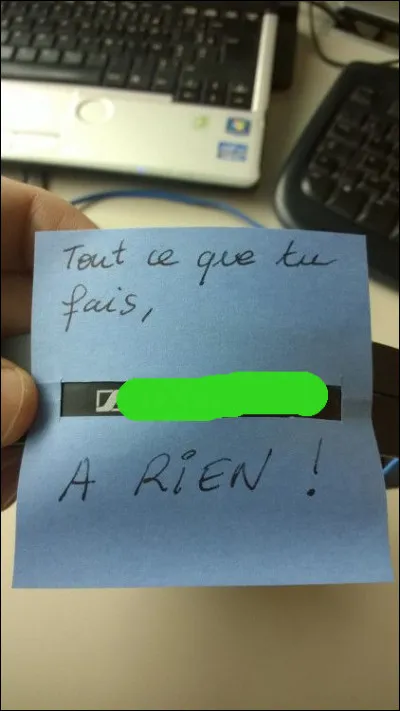 Tout ce que tu
fais,
A RIEN !